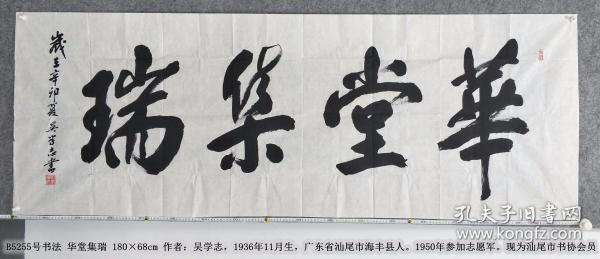 華堂集瑞
歲在辛卯夏吴学志書
孔夫子旧书网
B5255号书法 华堂集瑞 180×68cm 作者:吴学志，1936年11月生，广东省汕尾市海丰县人。1950年参加志愿军。现为汕尾市书协会员